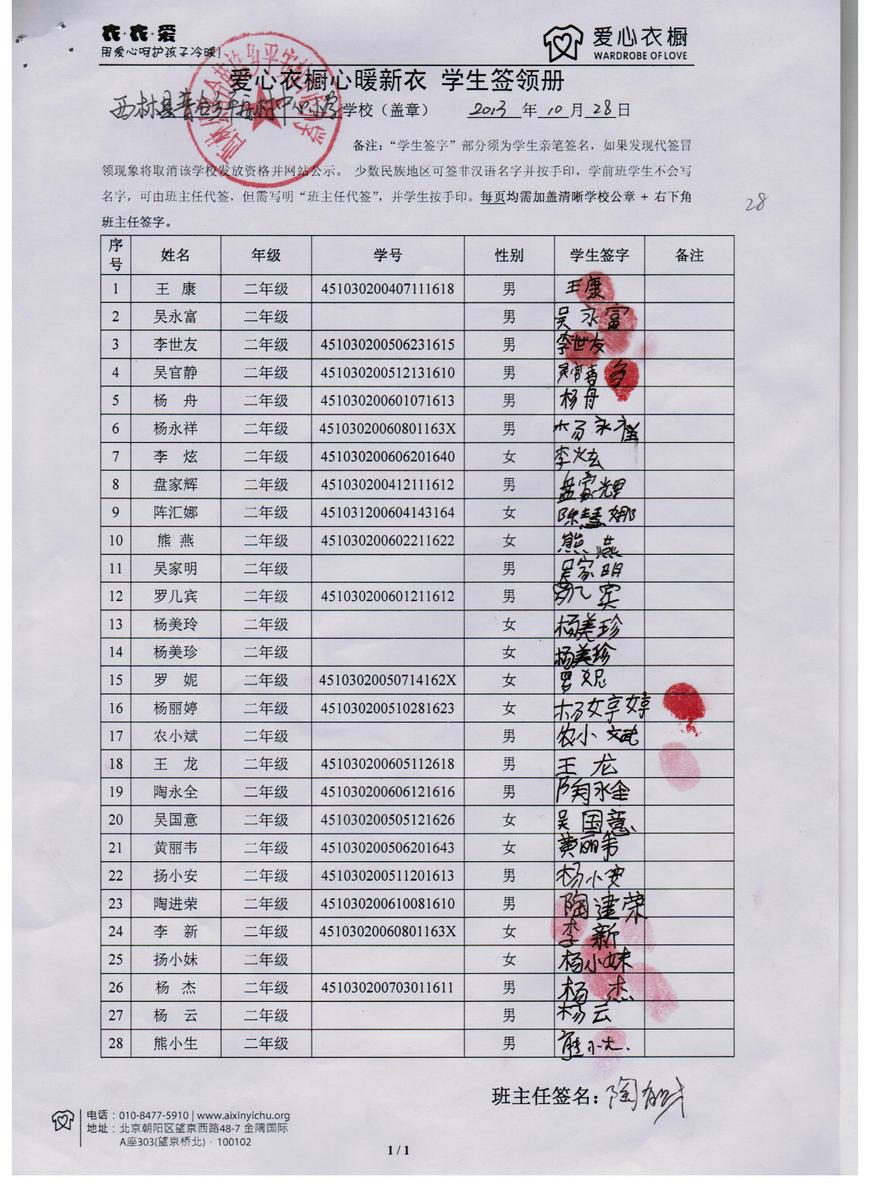 衣·衣·爱
用爱心呵护孩子冷暖!
爱心衣橱
WARDROBE OF LOVE
爱心衣橱心暖新衣 学生签领册
学校（盖章） 2013 年 10 月 28 日
备注：“学生签字”部分须为学生亲笔签名，如果发现代签冒
领现象将取消该学校发放资格并网站公示。 少数民族地区可签非汉语名字并按手印，学前班学生不会写
名字，可由班主任代签，但需写明“班主任代签”，并学生按手印。每页均需加盖清晰学校公章 + 右下角
班主任签字。
28
序号 姓名 年级 学号 性别 学生签字 备注
1 王 康 二年级 451030200407111618 男 王康
2 吴永富 二年级 男 吴永富
3 李世友 二年级 451030200506231615 男 李世友
4 吴官静 二年级 451030200512131610 男
5 杨 舟 二年级 451030200601071613 男 杨舟
6 杨永祥 二年级 45103020060801163X 男 杨永祥
7 李 炫 二年级 451030200606201640 女 李炫
8 盘家辉 二年级 451030200412111612 男 盘家辉
9 阵汇娜 二年级 451031200604143164 女 陈慧娜
10 熊 燕 二年级 451030200602211622 女 熊燕
11 吴家明 二年级 男 吴家明
12 罗儿宾 二年级 451030200601211612 男
13 杨美玲 二年级 女 杨美珍
14 杨美珍 二年级 女 杨美珍
15 罗 妮 二年级 45103020050714162X 女 罗妮
16 杨丽婷 二年级 451030200510281623 女
17 农小斌 二年级 男 农小斌
18 王 龙 二年级 451030200605112618 男 王龙
19 陶永全 二年级 451030200606121616 男 陶永金
20 吴国意 二年级 451030200505121626 女 吴国意
21 黄丽韦 二年级 451030200506201643 女 黄丽韦
22 扬小安 二年级 451030200511201613 男 杨小安
23 陶进荣 二年级 451030200610081610 男 陶建荣
24 李 新 二年级 45103020060801163X 女 李新
25 扬小妹 二年级 女 杨小妹
26 杨 杰 二年级 451030200703011611 男 杨杰
27 杨 云 二年级 男 杨云
28 熊小生 二年级 男
班主任签名：
电话：010-8477-5910 | www.aixinyichu.org
地址：北京朝阳区望京西路48-7 金隅国际
A座303(望京桥北)·100102
1 / 1